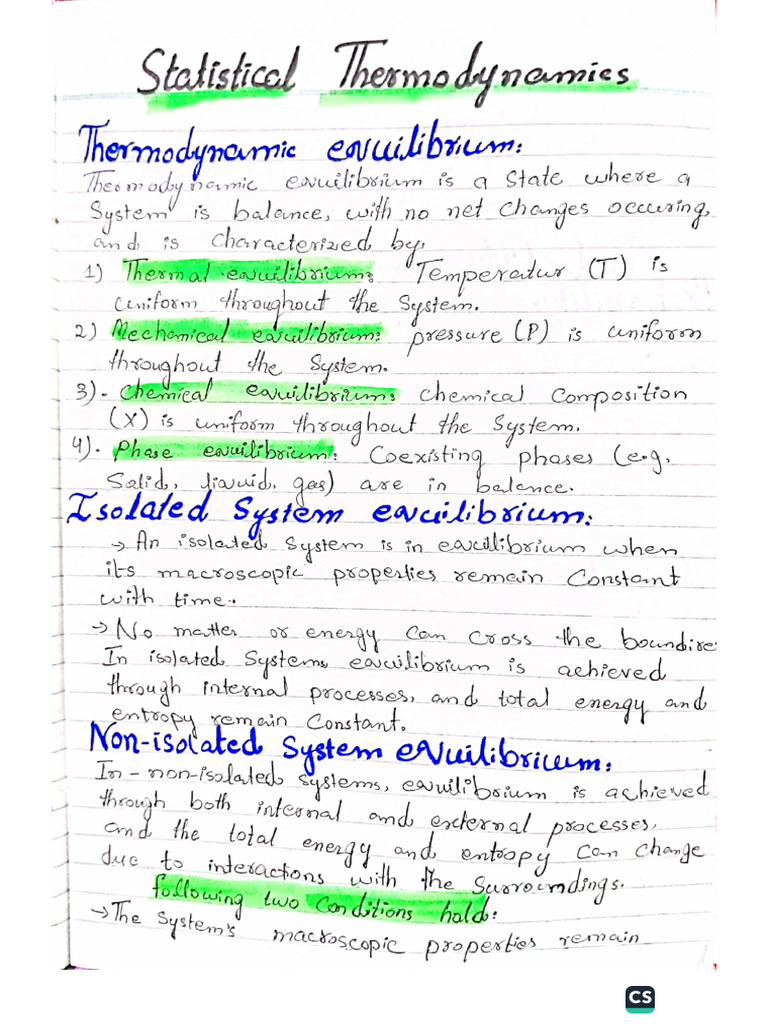 Statistical Thermodynamics
Thermodynamic equilibrium:
Thermodynamic equilibrium is a state where a
System is balance, with no net changes occuring,
and is characterized by,
1) Thermal equilibrium: Temperatur (T) is
uniform throughout the System.
2) Mechanical equilibrium: pressure (P) is uniform
throughout the System.
3)- Chemical equilibrium: chemical Composition
(X) is uniform throughout the System.
4)- Phase equilibrium: Coexisting phases (e.g,
Solid, liquid, gas) are in balance.
Isolated System equilibrium:
→ An isolated System is in equilibrium when
its macroscopic properties remain Constant
with time.
→ No matter or energy can cross the boundire
In isolated Systems equilibrium is achieved
through internal processes, and total energy and
entropy remain Constant.
Non-isolated System equilibrium:
In-non-isolated systems, equilibrium is achieved
through both internal and external processes,
and the total energy and entropy can change
due to interactions with the Surroundings.
following two Conditions hold:
→ The System's macroscopic properties remain
CS